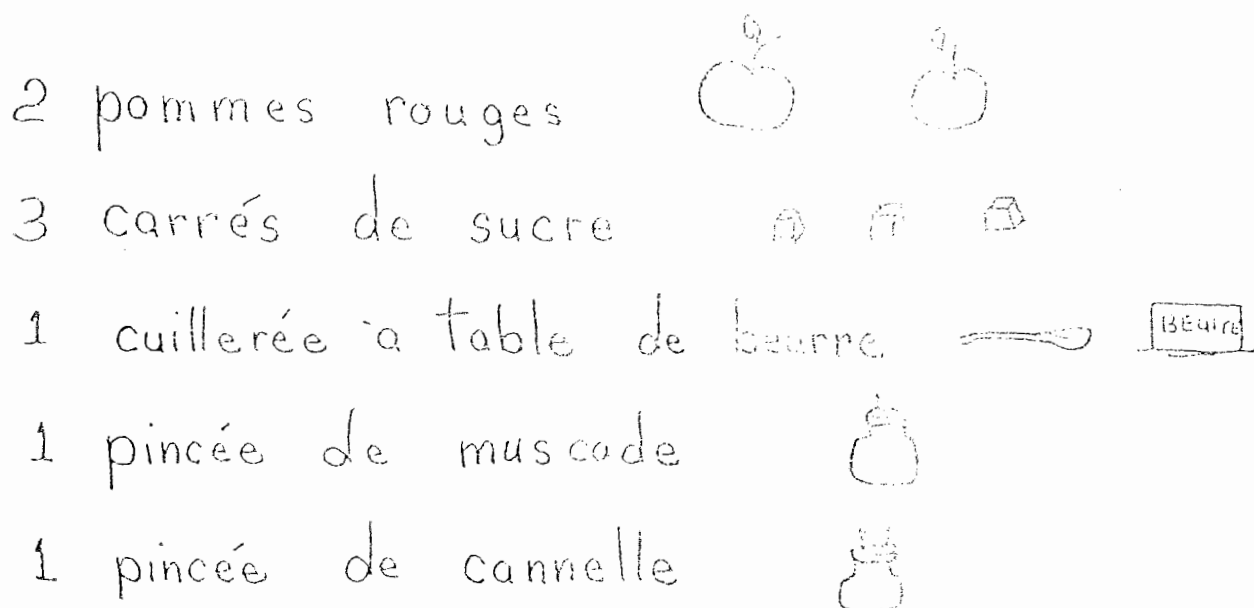 2 pommes rouges
3 carrés de sucre
1 cuillerée à table de beurre BEURRE
1 pincée de muscade
1 pincée de cannelle